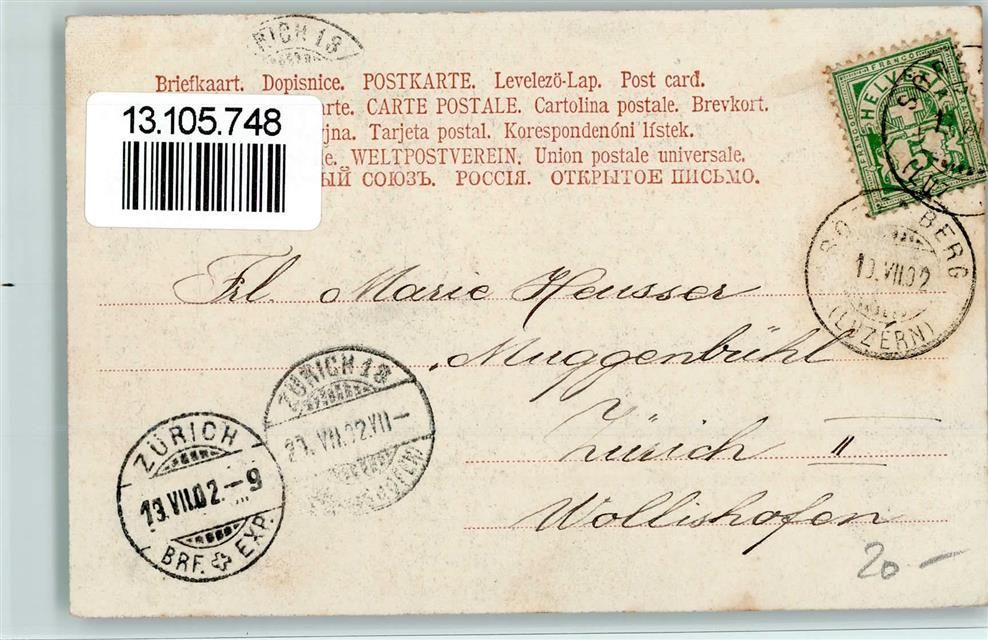 Briefkaart. Dopisnice. POSTKARTE. Levelezö-Lap. Post card.
CARTE POSTALE. Cartolina postale. Brevkort.
Tarjeta postal. Korespondenóni lístek.
WELTPOSTVEREIN. Union postale universale.
СОЮЗЪ. РОССІЯ. ОТКРЫТОЕ ПИСЬМО.
13.105.748
FRANCO
HELVETIA
10.VII.02
(LUZERN)
Frl. Marie Heusser
Muggenbühl
Zürich II
Wollishofen
ZÜRICH 13
ZÜRICH
13.VII.02.–9
BRF. EXP.
20 –